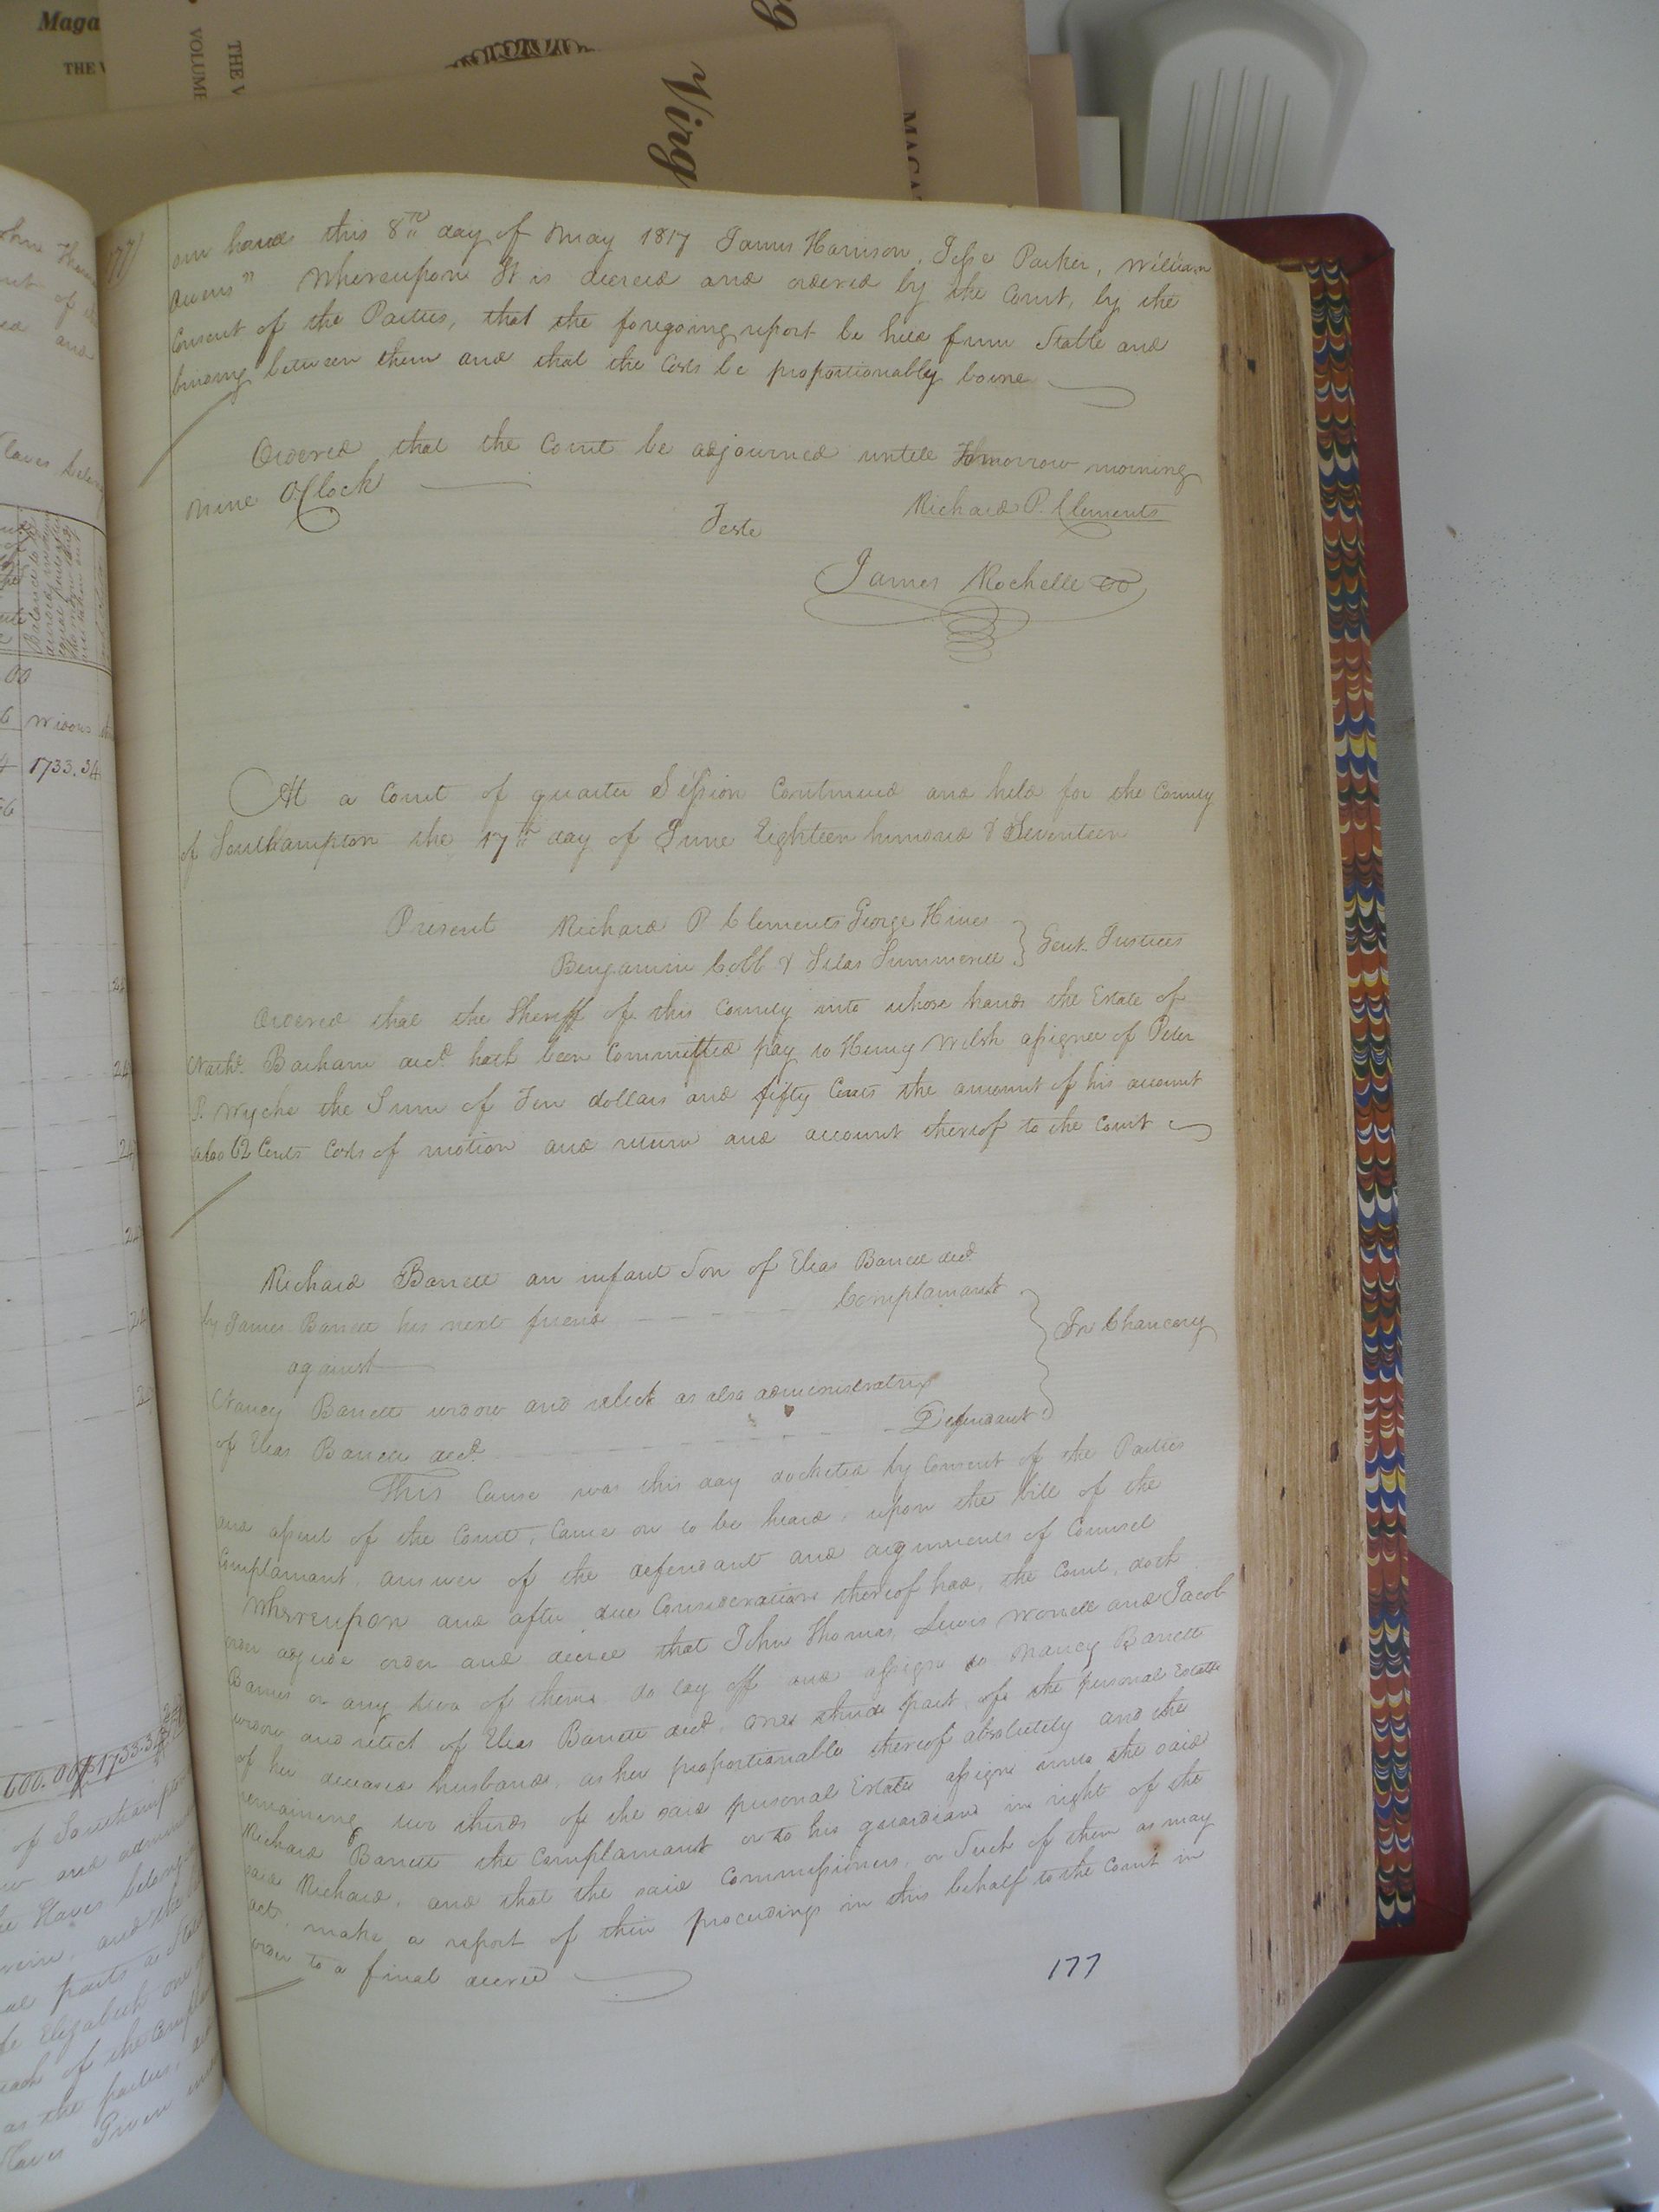 Maga
THE V
VOLUME
THE V
Virg
MAGA
177)
our hands this 8th day of May 1817 James Harrison, Jesse Parker, William
Owens" Whereupon It is decreed and ordered by the Court, by the
Consent of the Parties, that the foregoing report be held firm Stable and
binding between them and that the Costs be proportionably borne
Ordered that the Court be adjourned untill Tomorrow morning
nine OClock
Richard P. Clements
Teste
James Rochelle
At a Court of quarter Session Continued and held for the County
of Southampton the 17th day of June Eighteen hundred & Seventeen
Present Richard P Clements George Hines
Benjamin Cobb & Silas Summerell } Gent. Justices
Ordered that the Sheriff of this County into whose hands the Estate of
Nathl. Barham decd. hath been Committed pay to Henry Welsh assignee of Peter
P. Wyche the Sum of Ten dollars and fifty Cents the amount of his account
also 62 Cents Costs of motion and return and account thereof to the Court
Richard Barrett an infant Son of Elias Barrett decd.
by James Barrett his next friend Complainant
against
In Chancery
Nancy Barrett widow and relict as also administratrix
of Elias Barrett decd. Defendant
This Cause was this day docketed by Consent of the Parties
and assent of the Court, Came on to be heard, upon the bill of the
Complainant, answer of the defendant and arguments of Counsel
Whereupon and after due Consideration thereof had, the Court, doth
order adjude order and decree that John Thomas, Lewis Worrell and Jacob
Barnes or any two of them do lay off and assign to Nancy Barrett
widow and relict of Elias Barrett decd. one third part, of the personal Estate
of her deceased husband, as her proportionable thereof absolutely and the
remaining two thirds of the said personal Estate assign unto the said
Richard Barrett the Complainant or to his guardian in right of the
said Richard, and that the said Commissioners, or Such of them as may
act, make a report of their proceedings in this behalf to the Court in
order to a final decree
177
00
6 widows
1733.34
24
24
24
24
24
600.00 $1733.34
of Southampton